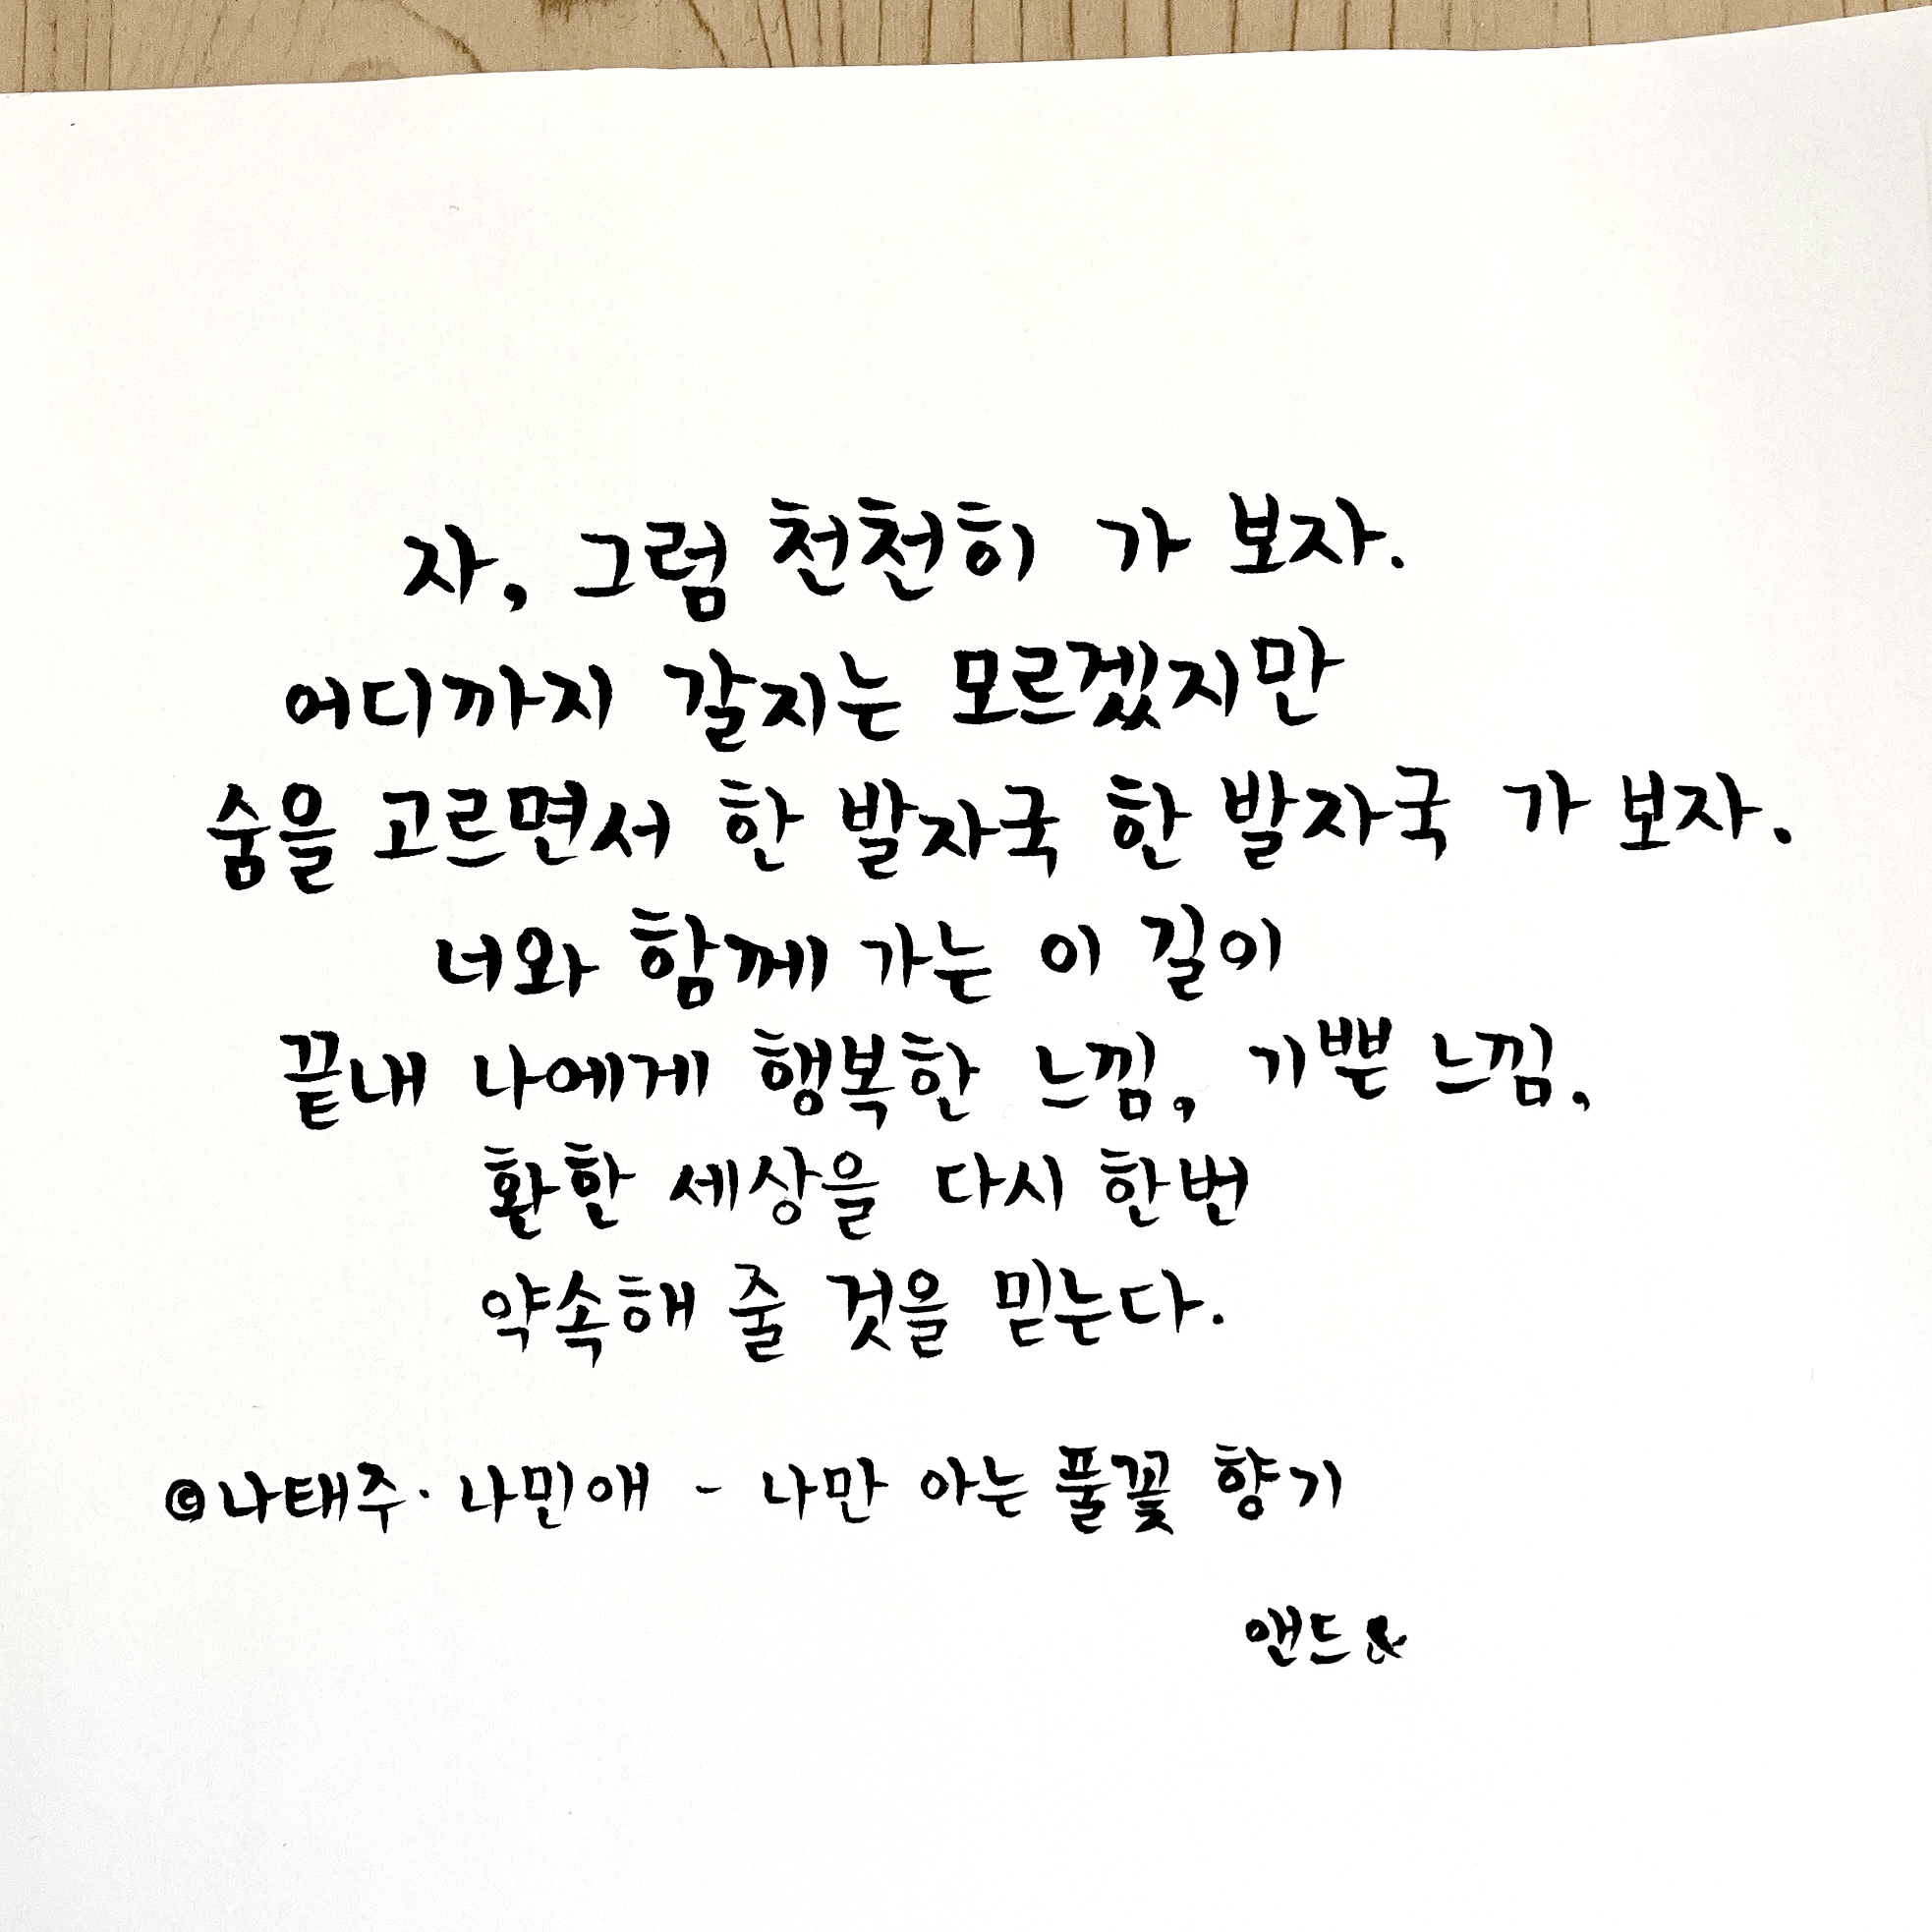 자, 그럼 천천히 가 보자.
어디까지 갈지는 모르겠지만
숨을 고르면서 한 발자국 한 발자국 가 보자.
너와 함께 가는 이 길이
끝내 나에게 행복한 느낌, 기쁜 느낌,
환한 세상을 다시 한번
약속해 줄 것을 믿는다.
©나태주·나민애 - 나만 아는 풀꽃 향기
앤드&